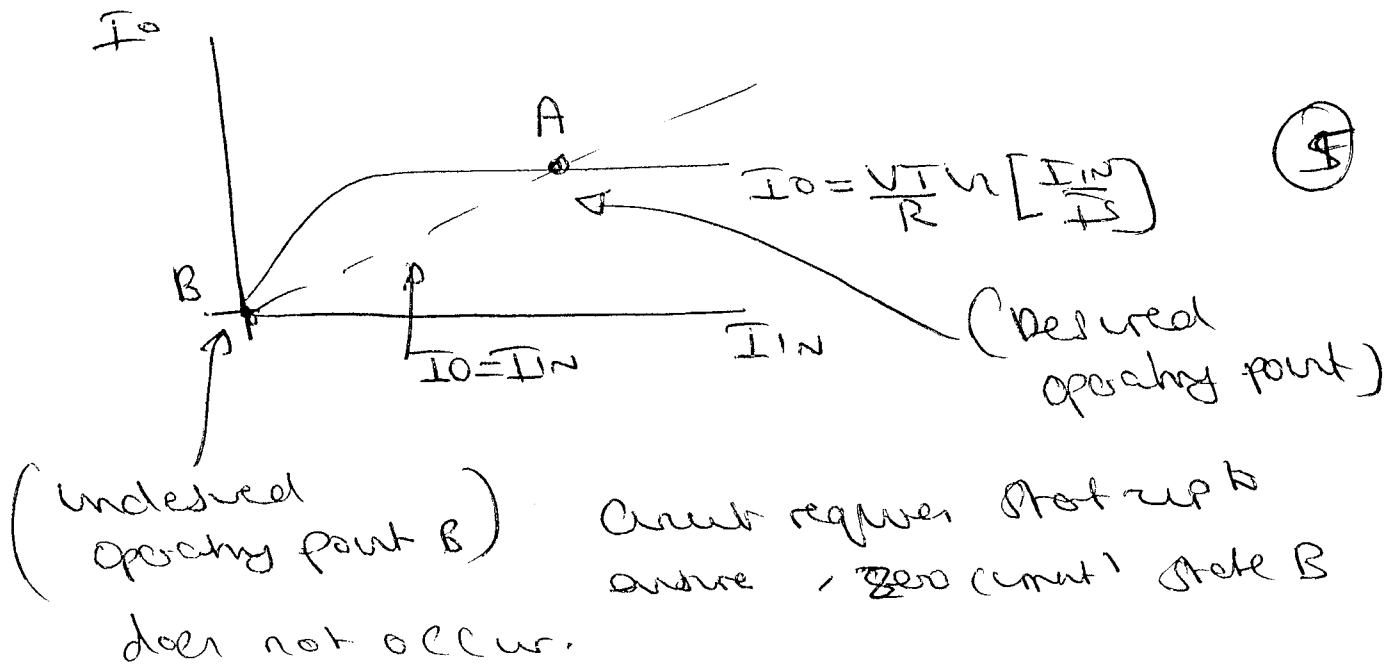 Io
A
Io = VT/R ln [IIN/IS]
B
Io = IIN
IIN
(Desired
operating point)
(undesired
operating point B)
Circuit requires start up to
ensure 'zero current' state B
does not occur.